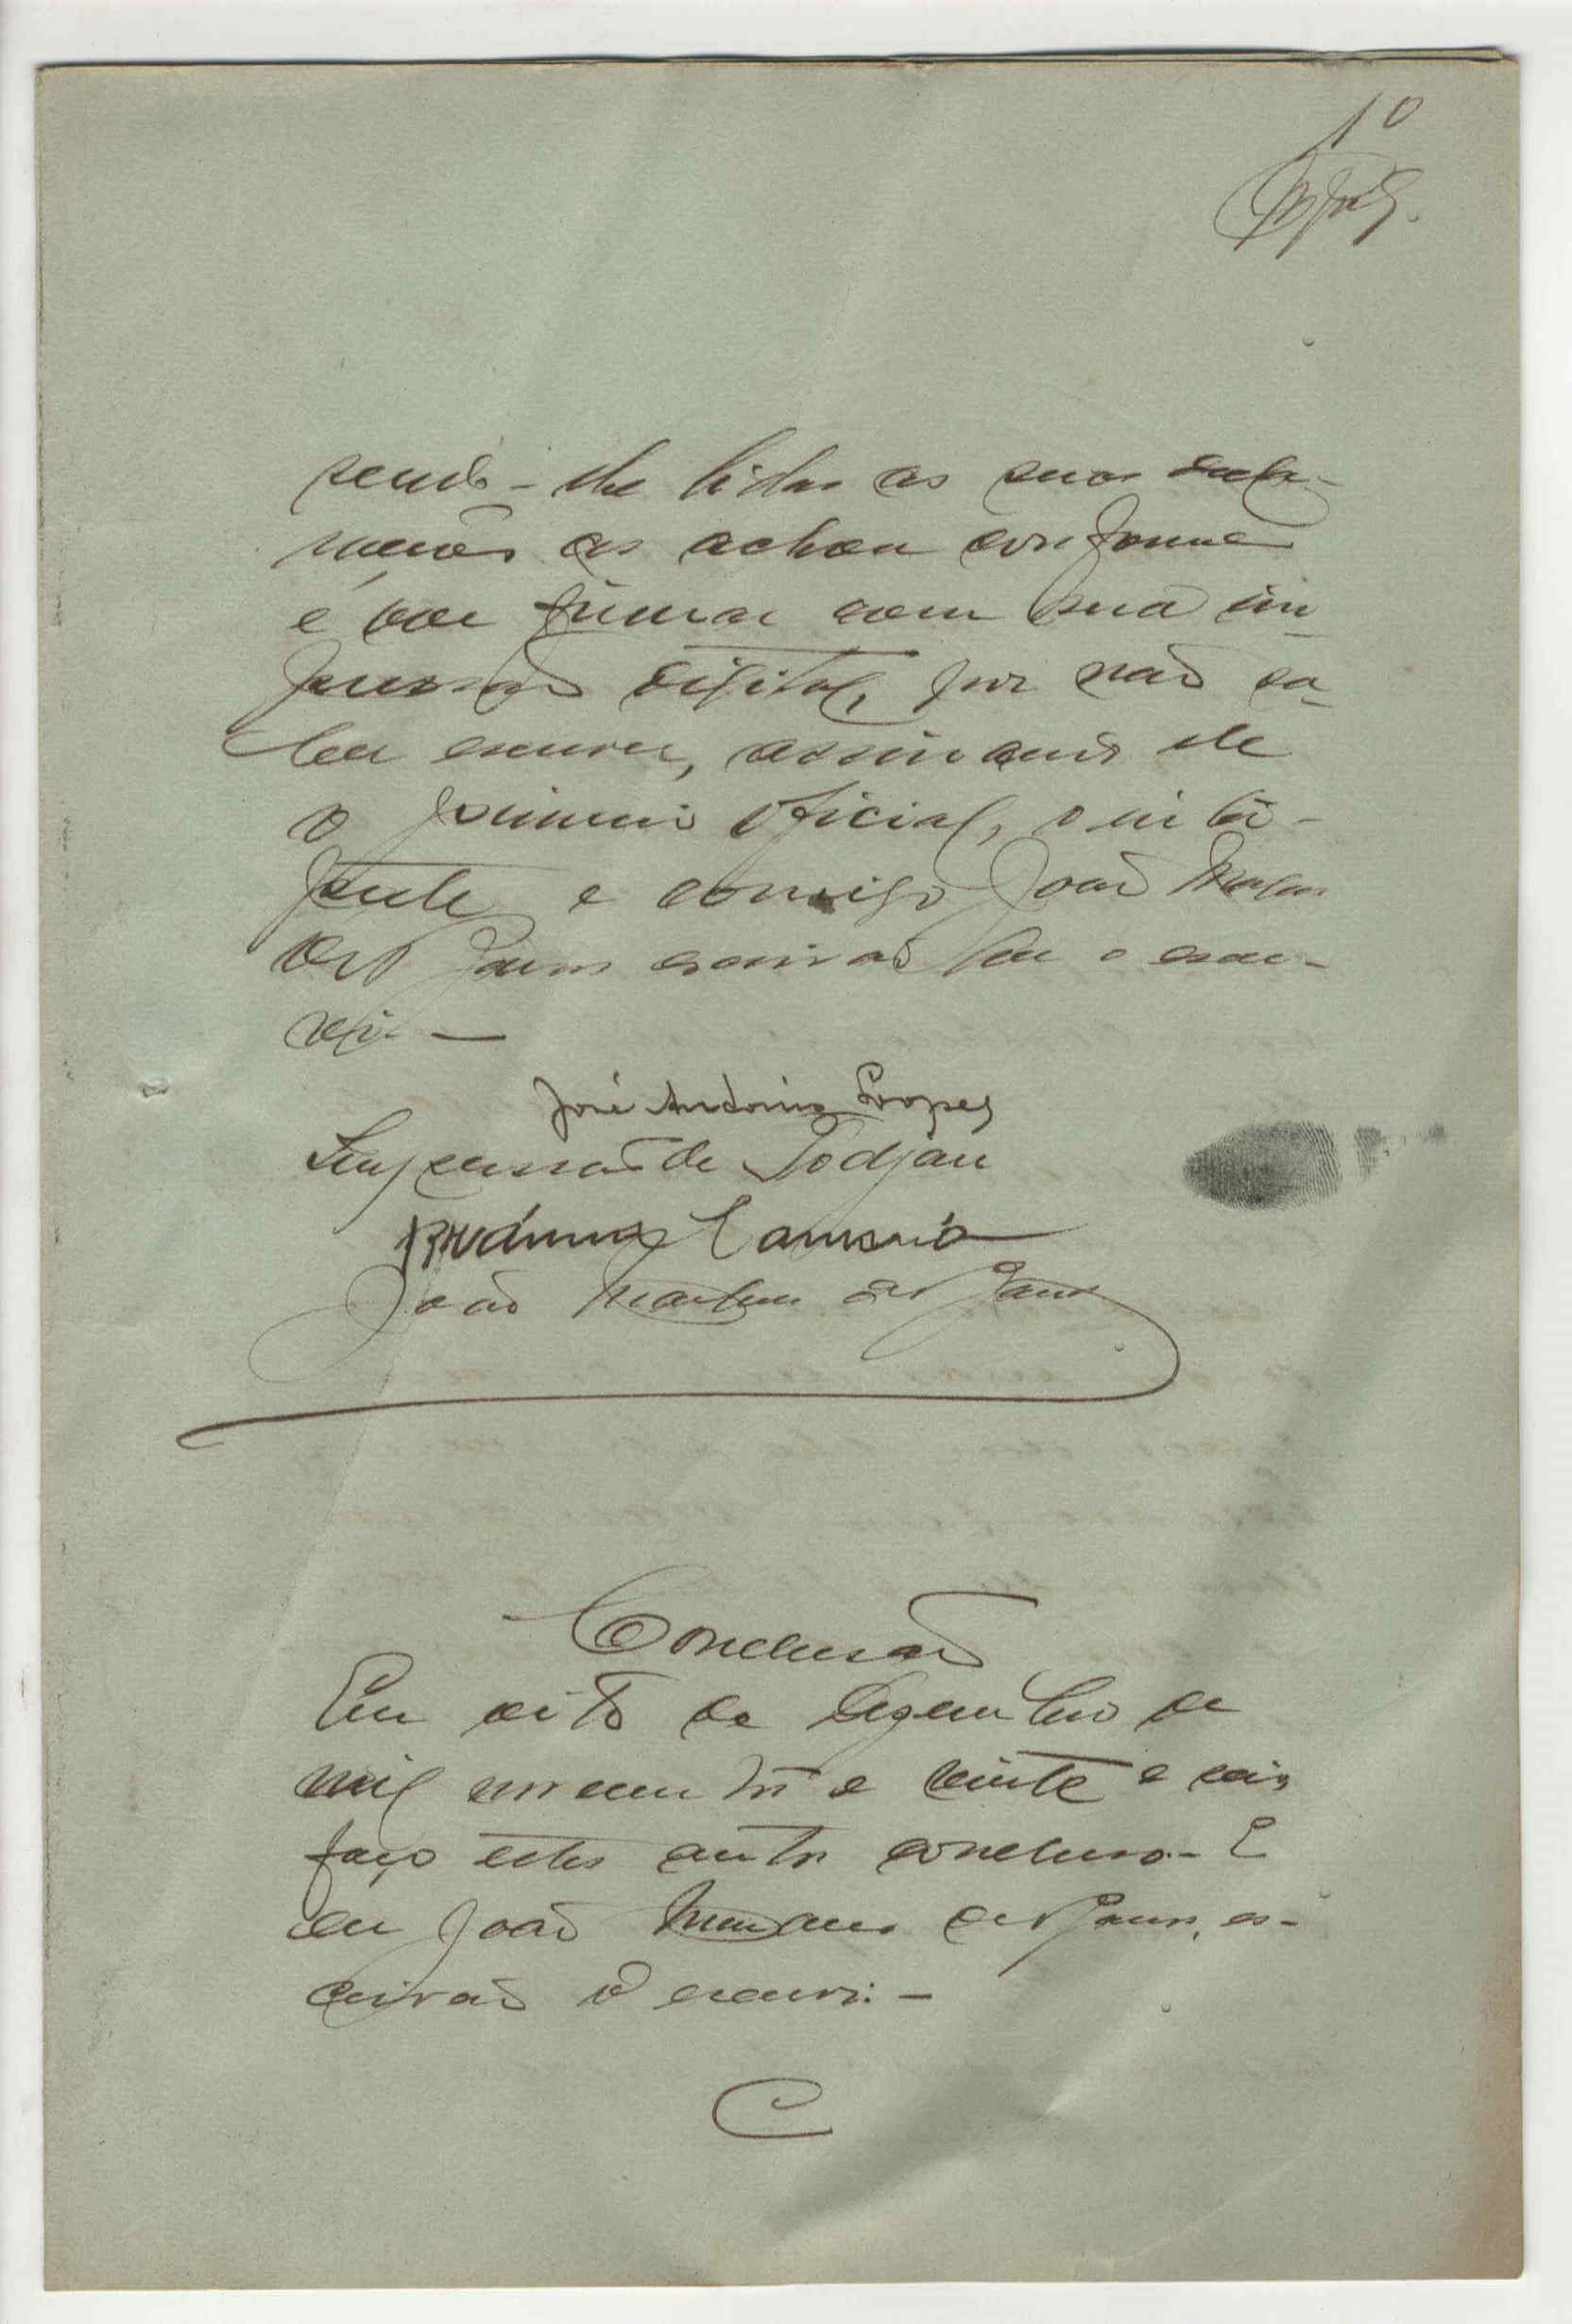 10
sendo-lhe lidas as suas decla-
rações as achou conforme
e vae firmar com sua im
pressão digital, por não sa-
ber escrever, assinando ele
o primeiro oficial, o intér-
prete e comigo João Martins
dos Santos escrivão que o escre-
vi. —
José António Lopes
Impressão de Todjam
Camará
João Martins dos Santos
Conclusão
Em oito de Dezembro de
mil novecentos e vinte e seis
faço estes autos conclusos. E
eu João Martins dos Santos, es-
crivão o escrevi. —
C